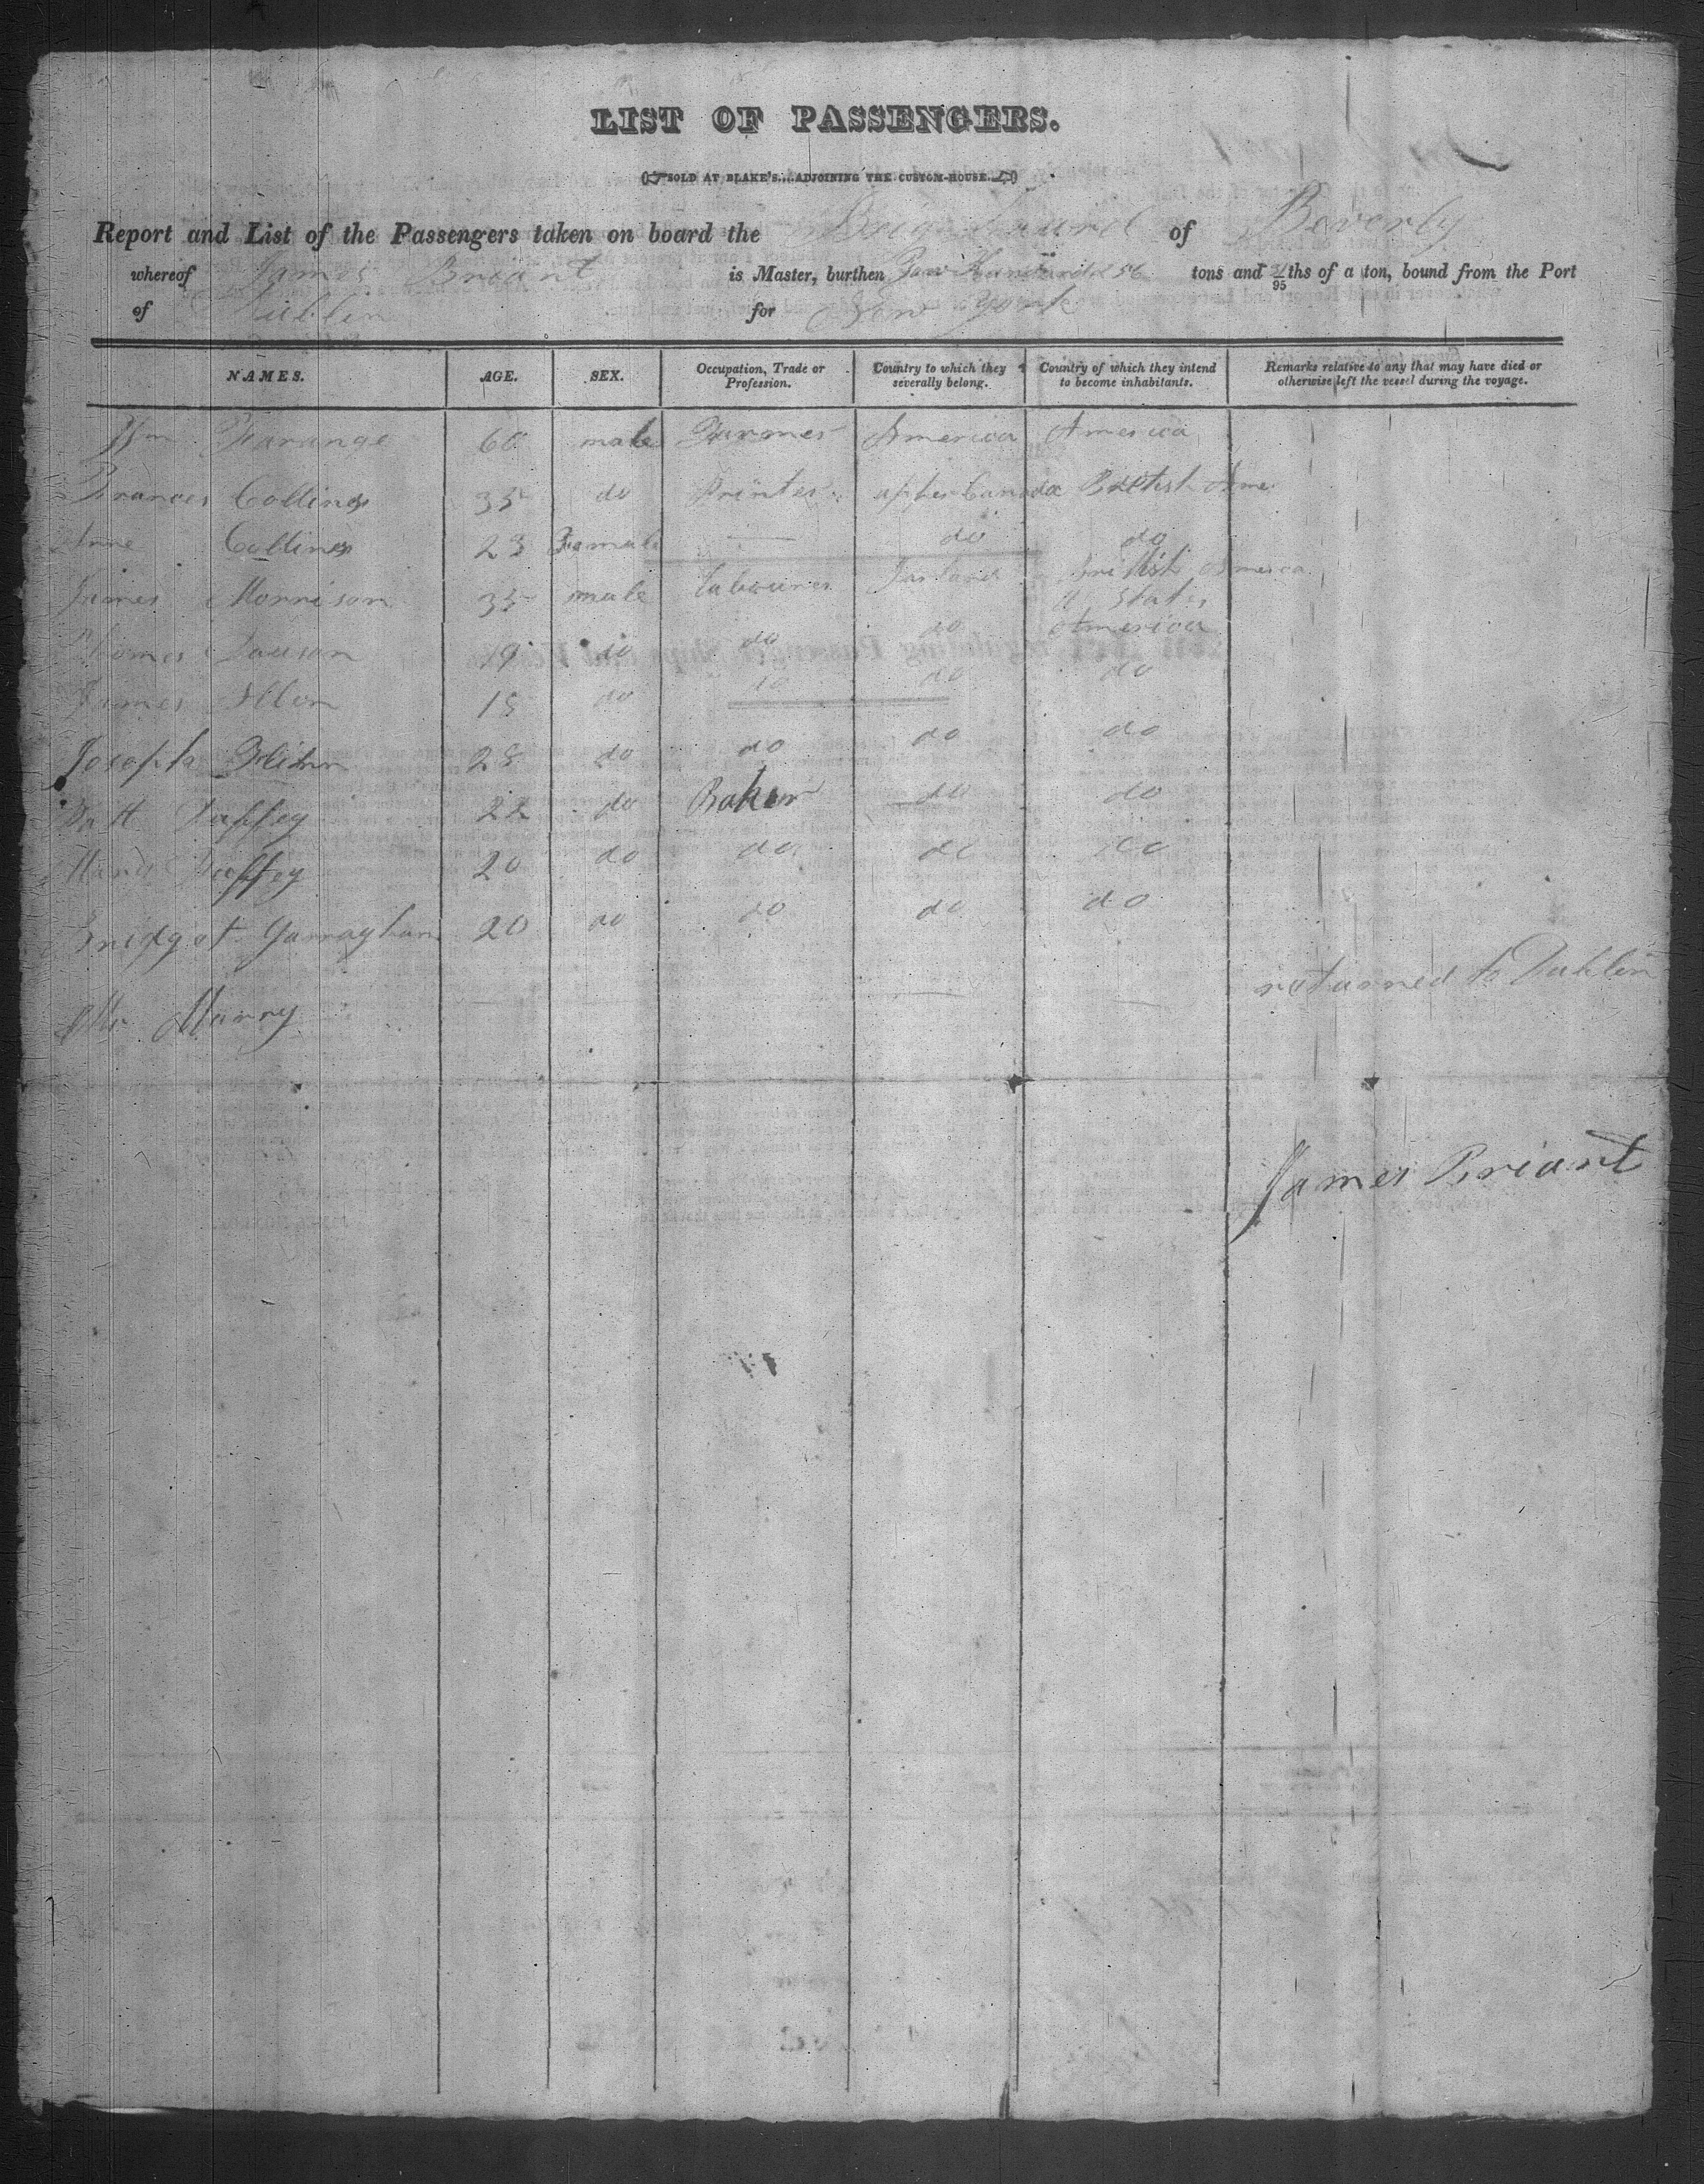 LIST OF PASSENGERS.
SOLD AT BLAKE'S....ADJOINING THE CUSTOM-HOUSE.
Report and List of the Passengers taken on board the Brig of Beverly
whereof James Briant is Master, burthen Two Hundred 56 tons and /95ths of a ton, bound from the Port
of Dublin for New York
NAMES. AGE. SEX. Occupation, Trade or Profession. Country to which they severally belong. Country of which they intend to become inhabitants. Remarks relative to any that may have died or otherwise left the vessel during the voyage.
Wm 60 male Farmer America America
Frances Collins 35 do Printer upper Canada British Ame
Anne Collins 23 Female — do do
James Morrison 35 male Labourer Ireland British America
U States
Thomas Dawson 19 do do do America
James 18 do do do do
Joseph Flinn 28 do do do do
Patt Duffey 22 do Baker do do
Mary Duffey 20 do do do do
Bridget Garraghan 20 do do do do
Mr Murry — — — returned to Dublin
James Briant